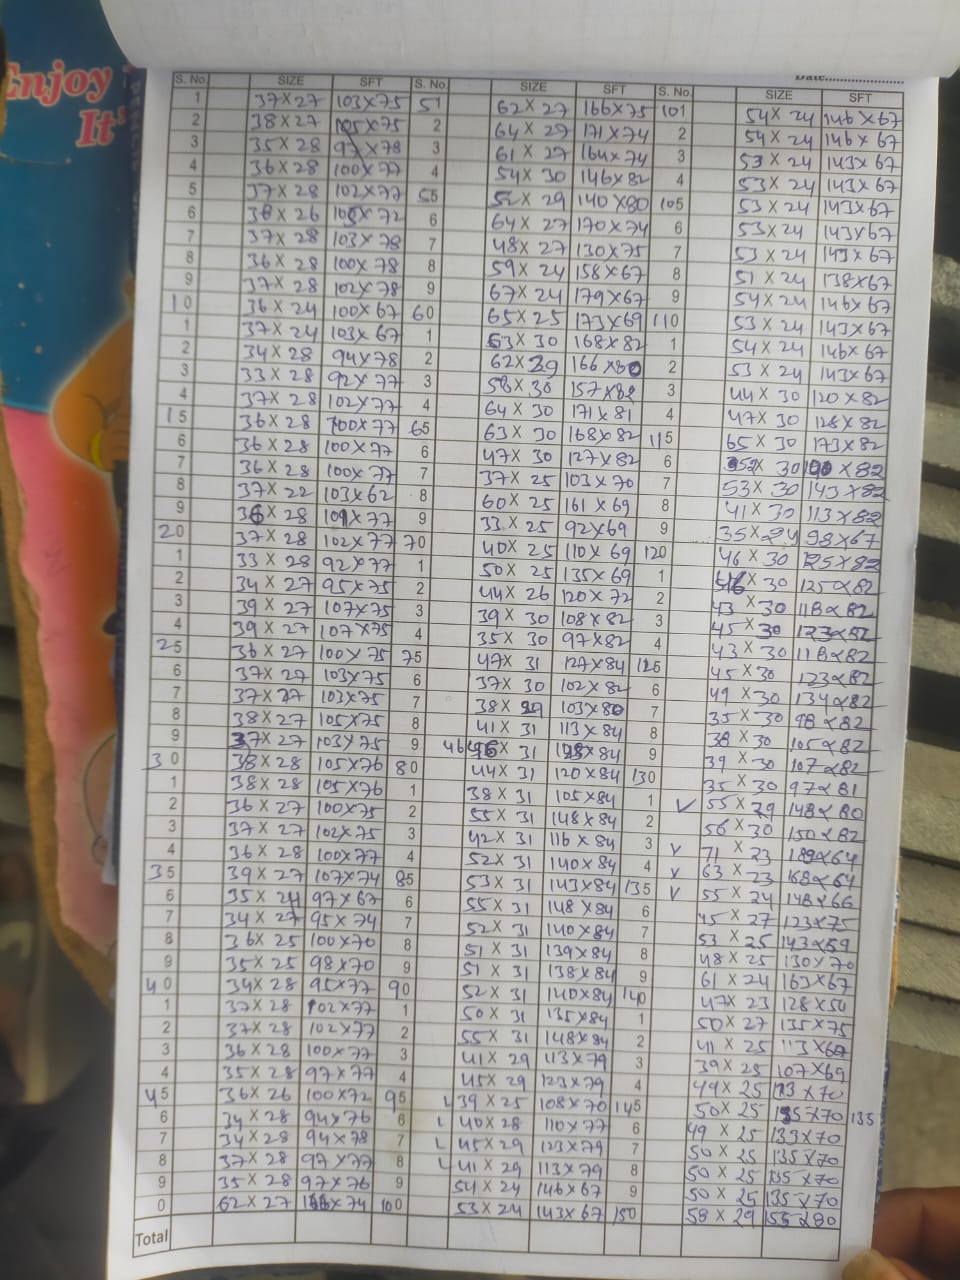 Enjoy
It's
Date
S. No. SIZE SFT S. No. SIZE SFT S. No. SIZE SFT
1 37X27 103X75 51 62X27 166X75 101 54X24 146X67
2 38X27 105X75 2 64X27 171X74 2 54X24 146X67
3 35X28 97X78 3 61X27 164X74 3 53X24 143X67
4 36X28 100X77 4 54X30 146X82 4 53X24 143X67
5 37X28 102X77 55 52X29 140X80 105 53X24 143X67
6 38X26 105X72 6 64X27 170X74 6 53X24 143X67
7 37X28 103X78 7 48X27 130X75 7 53X24 143X67
8 36X28 100X78 8 59X24 158X67 8 51X24 138X67
9 37X28 102X78 9 67X24 179X67 9 54X24 146X67
10 36X24 100X67 60 65X25 173X69 110 53X24 143X67
1 37X24 103X67 1 63X30 168X82 1 54X24 146X67
2 34X28 94X78 2 62X29 166X80 2 53X24 143X67
3 33X28 92X77 3 58X30 157X82 3 44X30 120X82
4 37X28 102X77 4 64X30 171X81 4 47X30 128X82
15 36X28 100X77 65 63X30 168X82 115 65X30 173X82
6 36X28 100X77 6 47X30 127X82 6 X30 X82
7 36X28 100X77 7 37X25 103X70 7 53X30 143X82
8 37X22 103X62 8 60X25 161X69 8 41X30 113X82
9 36X28 101X77 9 33X25 92X69 9 35X24 98X67
20 37X28 102X77 70 40X25 110X69 120 46X30 125X82
1 33X28 92X77 1 50X25 135X69 1 46X30 125X82
2 34X27 95X75 2 44X26 120X72 2 43X30 118X82
3 39X27 107X75 3 39X30 108X82 3 45X30 123X82
4 39X27 107X75 4 35X30 97X82 4 43X30 118X82
25 36X27 100X75 75 47X31 127X84 125 45X30 123X82
6 37X27 103X75 6 37X30 102X82 6 49X30 134X82
7 37X27 103X75 7 38X29 103X80 7 35X30 98X82
8 38X27 105X75 8 41X31 113X84 8 38X30 105X82
9 37X27 103X75 9 46 X31 X84 9 39X30 107X82
30 38X28 105X76 80 44X31 120X84 130 35X30 97X81
1 38X28 105X76 1 38X31 105X84 1 ✓ 55X29 148X80
2 36X27 100X75 2 55X31 148X84 2 56X30 150X82
3 37X27 102X75 3 42X31 116X84 3 ✓ 71X23 189X64
4 36X28 100X77 4 52X31 140X84 4 ✓ 63X23 168X64
35 39X27 107X74 85 53X31 143X84 135 ✓ 55X24 148X66
6 35X24 97X67 6 55X31 148X84 6 45X27 123X75
7 34X27 95X74 7 52X31 140X84 7 53X25 143X69
8 36X25 100X70 8 51X31 139X84 8 48X25 130X70
9 35X25 98X70 9 51X31 138X84 9 61X24 163X67
40 34X28 95X77 90 52X31 140X84 140 47X23 128X50
1 37X28 102X77 1 50X31 135X84 1 50X27 135X75
2 37X28 102X77 2 55X31 148X84 2 41X25 113X69
3 36X28 100X77 3 41X29 113X79 3 39X25 107X69
4 35X28 97X77 4 45X29 123X79 4 49X25 133X70
45 36X26 100X72 95 ✓ 39X25 108X70 145 50X25 135X70 135
6 34X28 94X76 6 ✓ 40X28 110X77 6 49X25 133X70
7 34X28 94X78 7 ✓ 45X29 123X79 7 50X25 135X70
8 37X28 97X77 8 ✓ 41X29 113X79 8 50X25 135X70
9 35X28 97X76 9 54X24 146X67 9 50X25 135X70
0 62X27 166X74 100 53X24 143X67 150 58X29 155X80
Total